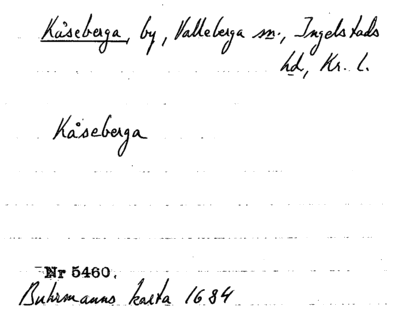 Kåseberga, by, Valleberga sn., Ingelstads
hd, Kr. l.
Kåseberga
Nr 5460.
Buhrmanns karta 1684